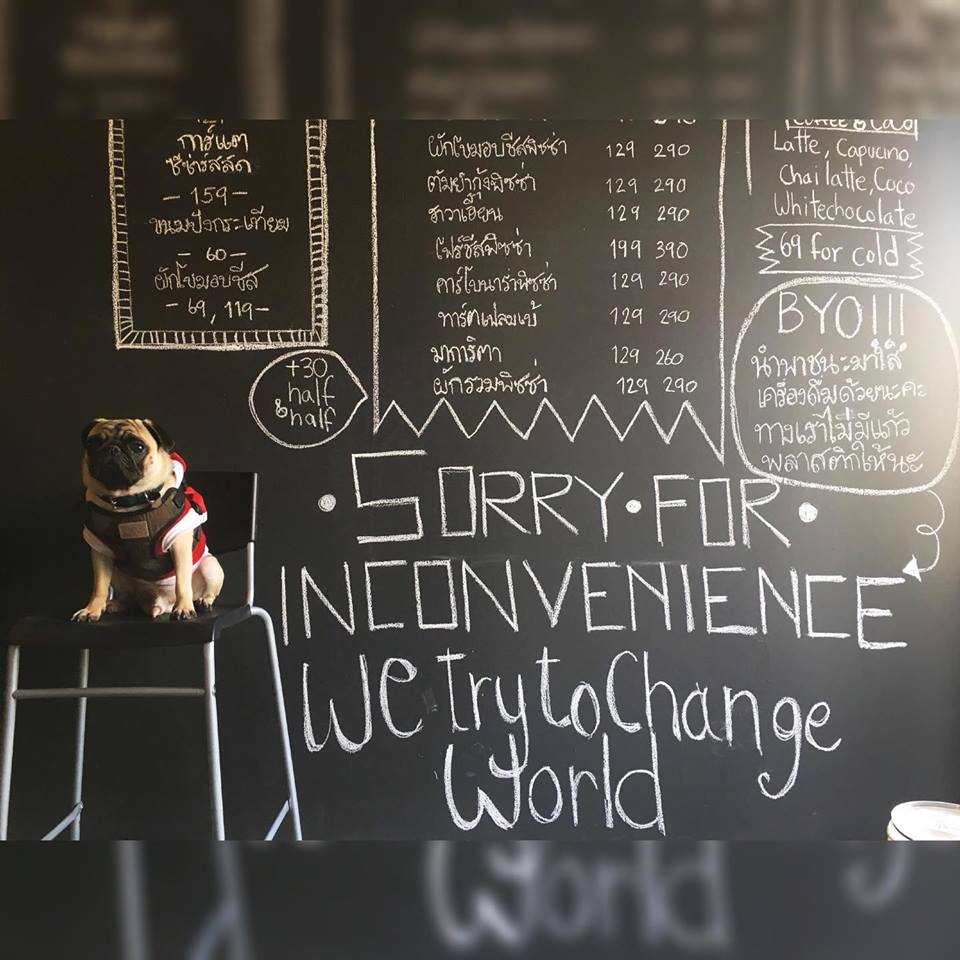 การ์แต
ซีซ่าร์สลัด
- 159 -
ขนมปังกระเทียม
- 60 -
ผักโขมอบชีส
- 69, 119 -
+30
half
& half
ผักโขมอบชีสพิซซ่า 129 290
ต้มยำกุ้งพิซซ่า 129 290
ฮาวาเอี้ยน 129 290
โฟร์ชีสพิซซ่า 199 390
คาร์โบนาร่าพิซซ่า 129 290
ทาร์ตเฟลมเบ้ 129 290
มาการิตา 129 260
ผักรวมพิซซ่า 129 290
Coffee & Coco
Latte, Capucino,
Chai latte, Coco
Whitechocolate
69 for cold
BYO!!!
นำพาชนะมาใส่
เครื่องดื่มด้วยนะคะ
ทางเราไม่มีแก้ว
พลาสติกให้นะ
• SORRY • FOR •
INCONVENIENCE
We Try to Change
World